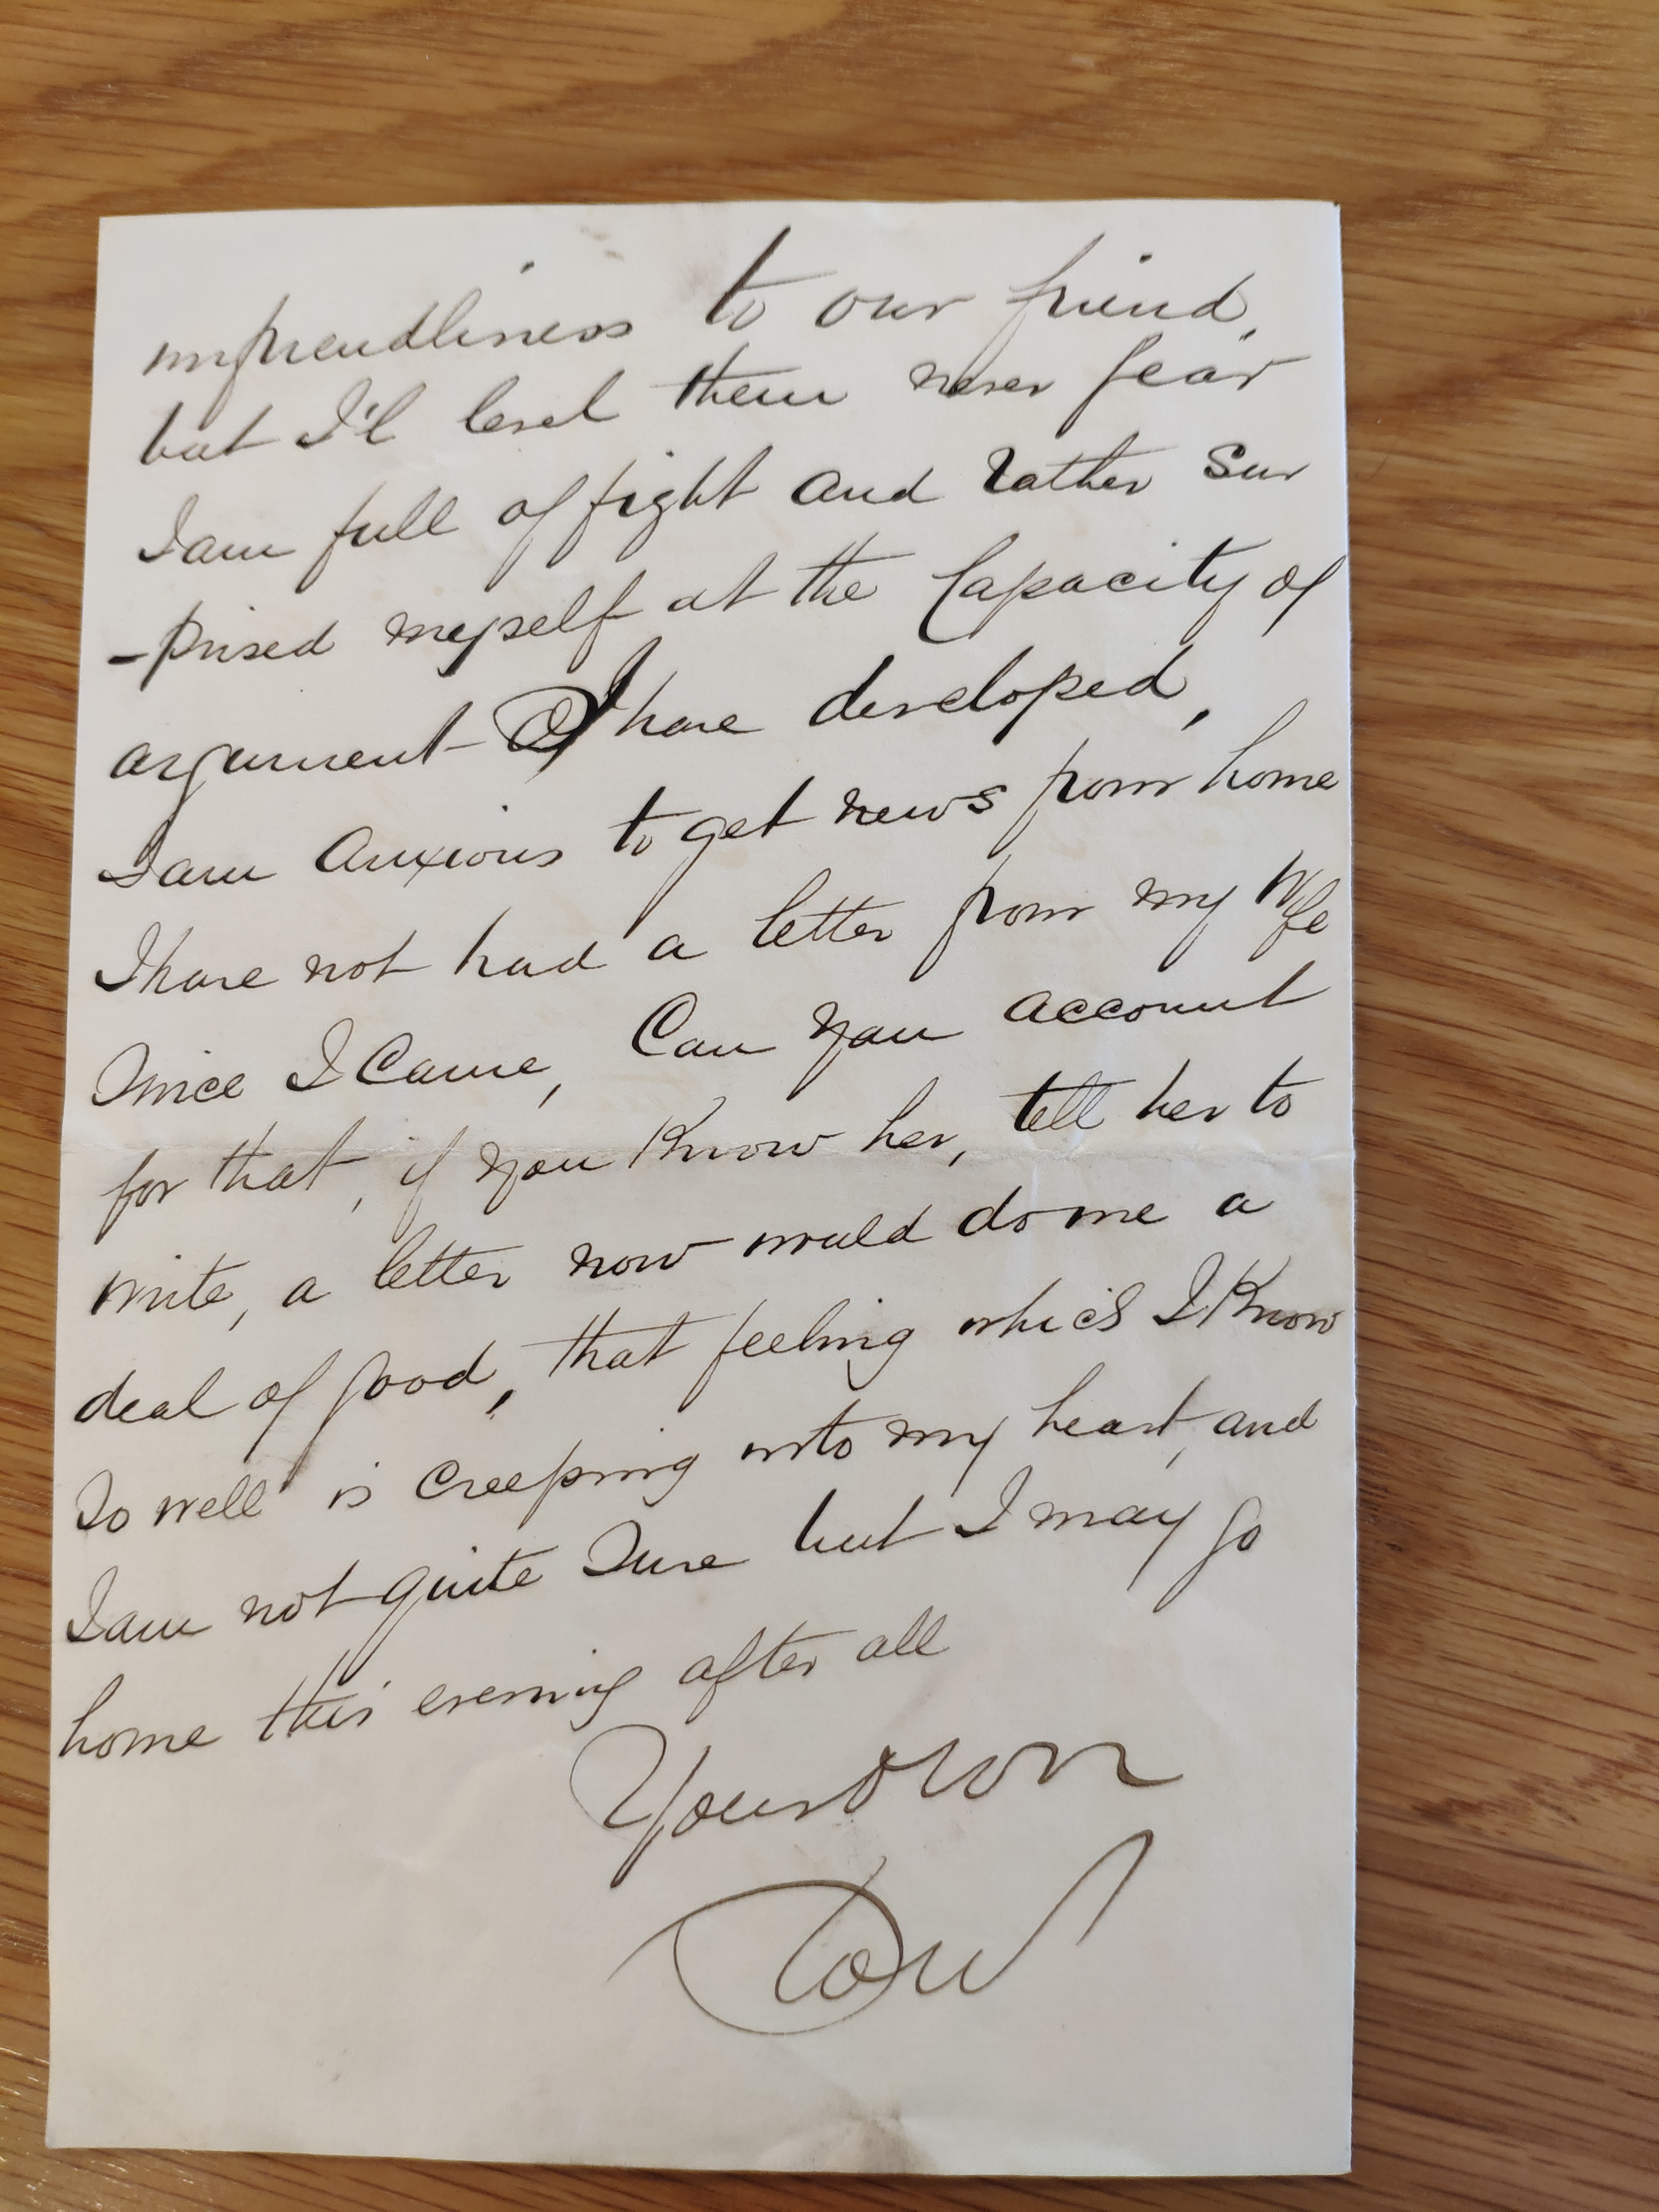 unfriendliness to our friend,
but I'l level them never fear
I am full of fight and rather sur
-prised myself at the Capacity of
argument I have developed,
I am anxious to get news from home
I have not had a letter from my Wife
Since I Came, Can you account
for that, if you Know her, tell her to
write, a letter now would do me a
deal of good, that feeling which I Know
So well is creeping into my heart, and
I am not quite Sure but I may go
home this evening after all
Your own